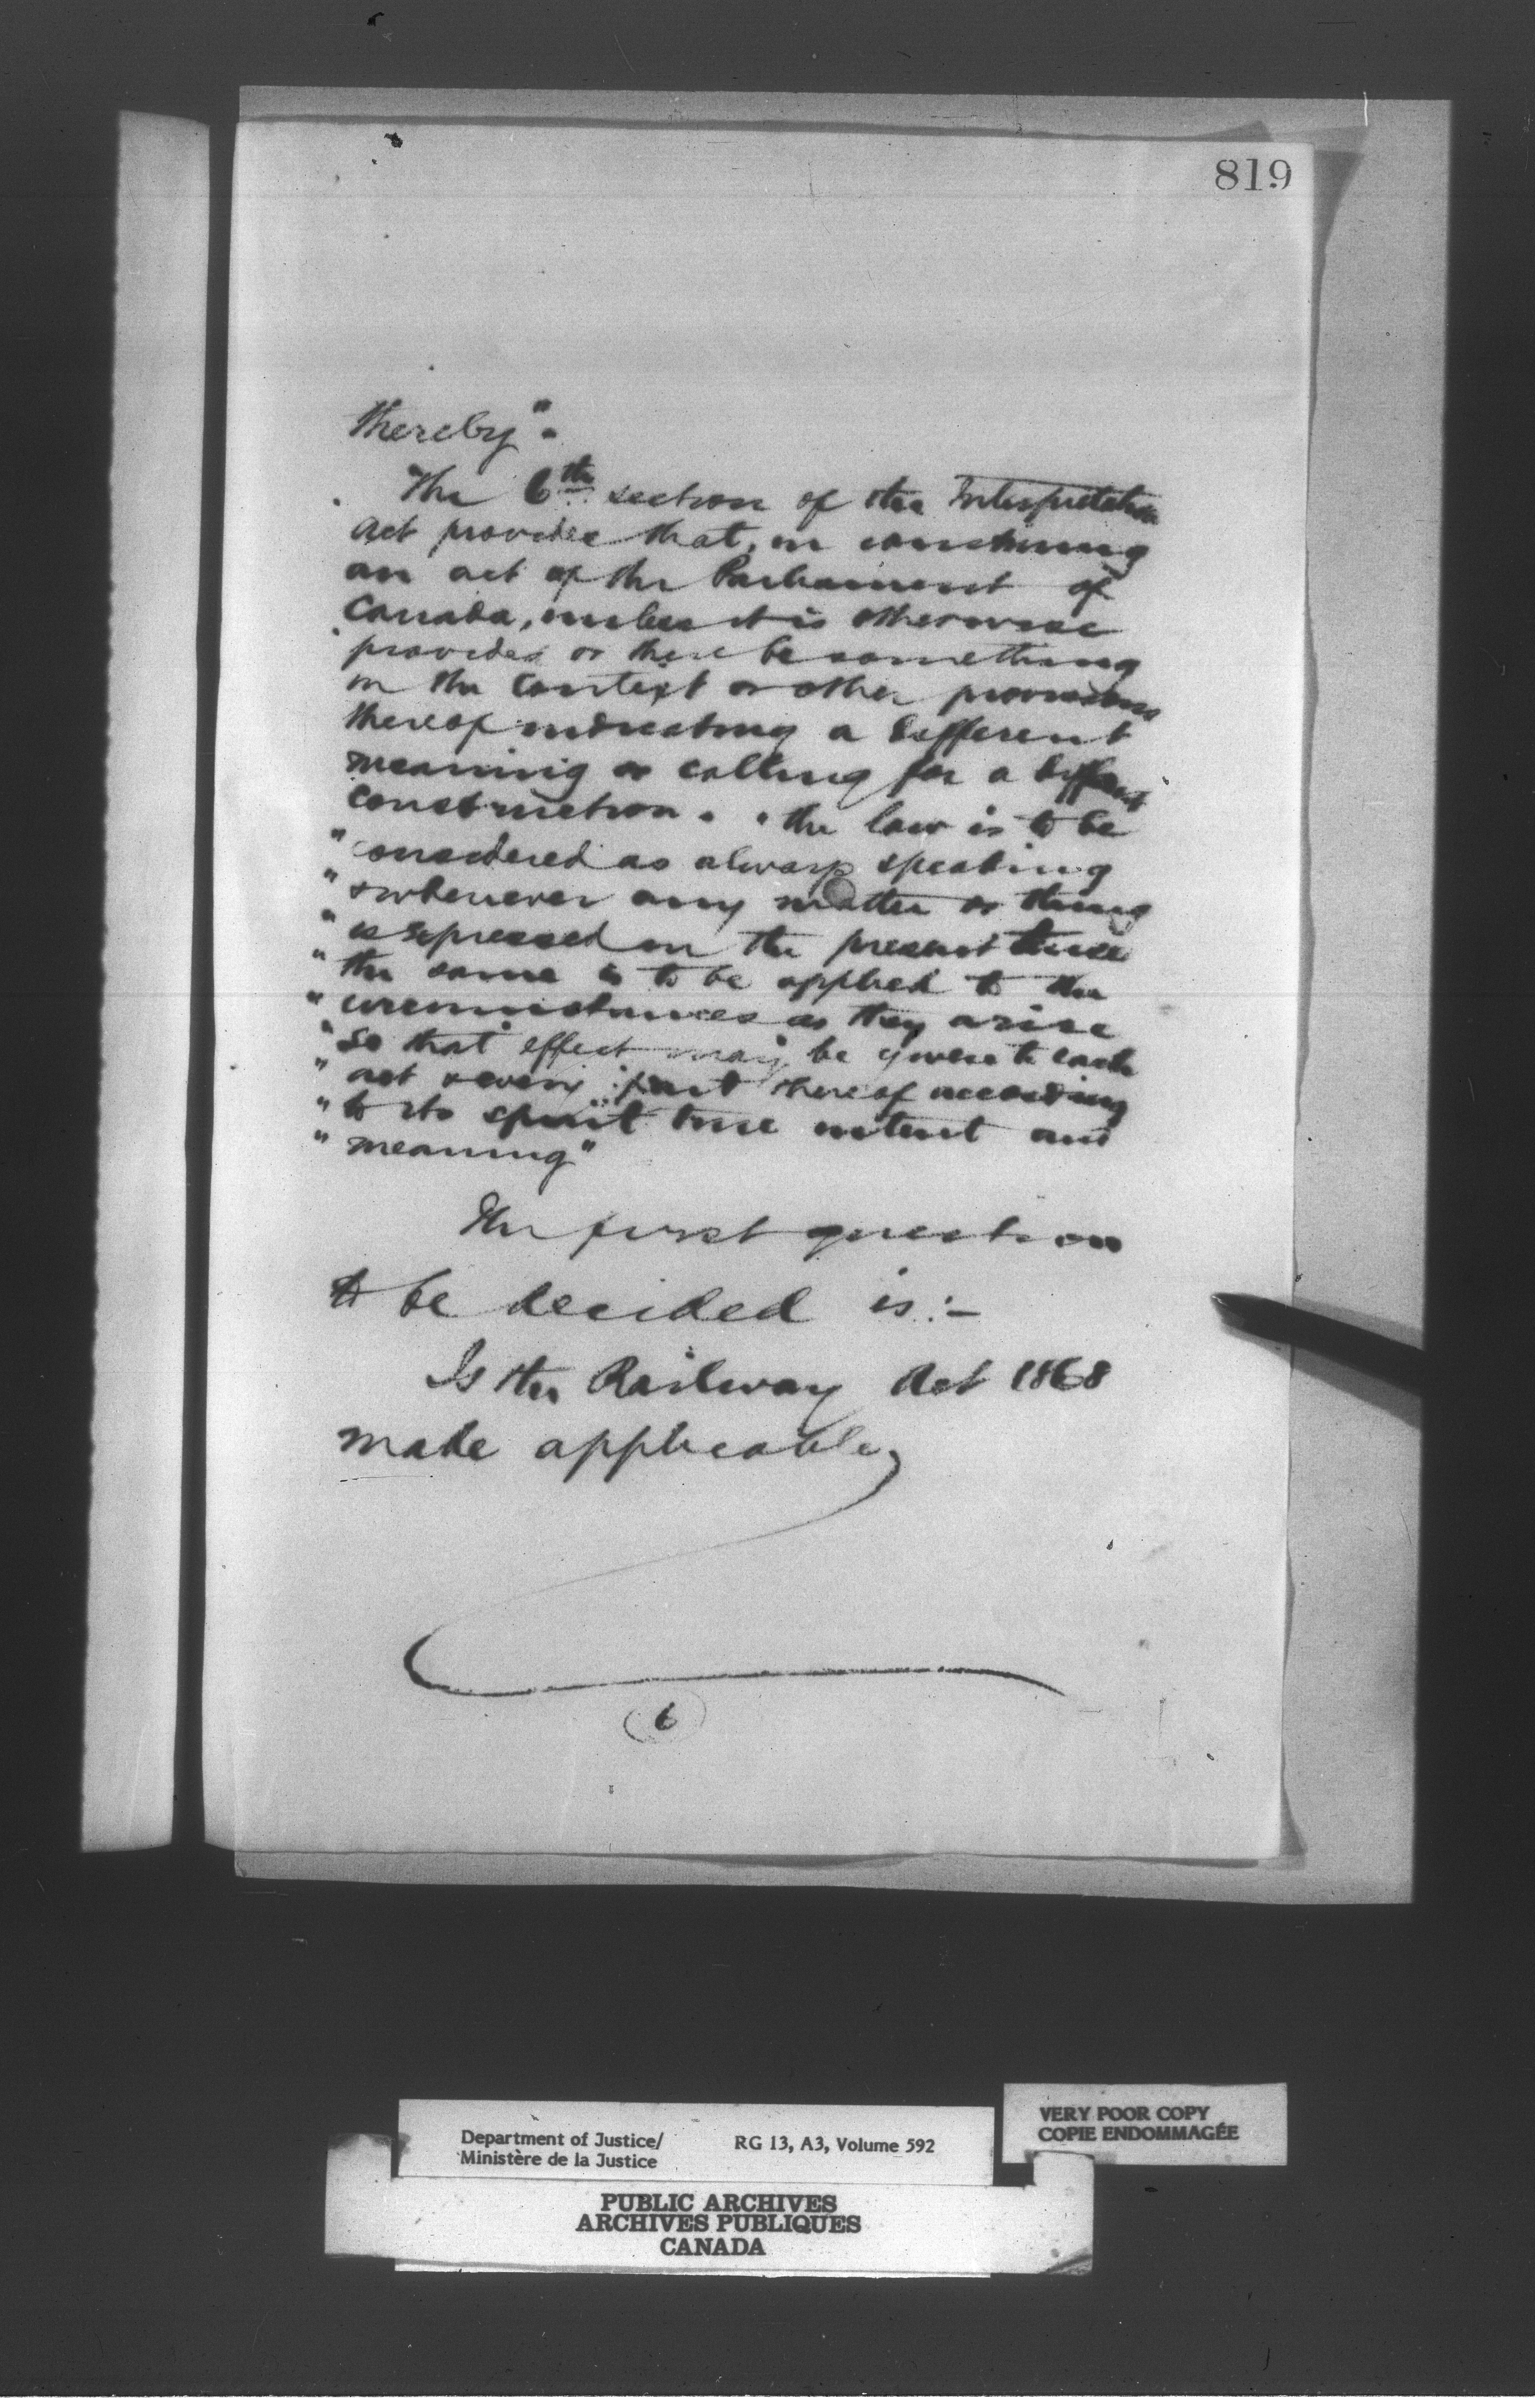 819
thereby".
The 6th section of the Interpretation
Act provides that, in construing
an act of the Parliament of
Canada, unless it is otherwise
provided or there be something
in the context or other provisions
thereof indicating a different
meaning or calling for a different
construction. "the law is to be
"considered as always speaking
"& whenever any matter or thing
"is expressed in the present tense
"the same is to be applied to the
"circumstances as they arise
"so that effect may be given to each
"act & every part thereof according
"to its spirit true intent and
"meaning"
The first question
to be decided is:-
Is the Railway Act 1868
made applicable,
6
Department of Justice/ RG 13, A3, Volume 592
Ministère de la Justice
VERY POOR COPY
COPIE ENDOMMAGÉE
PUBLIC ARCHIVES
ARCHIVES PUBLIQUES
CANADA